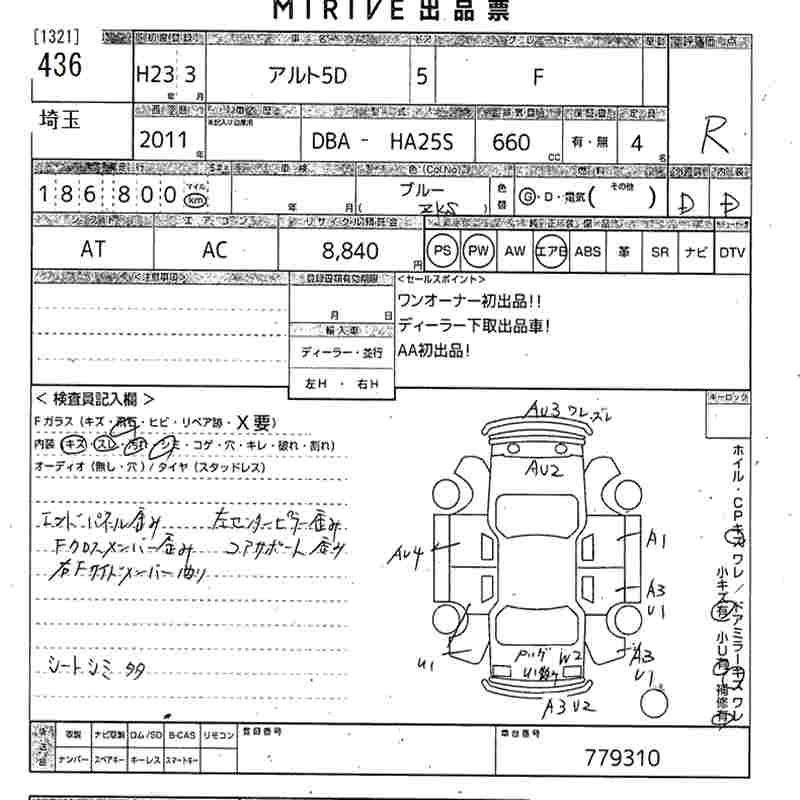 MIRIVE 出品票
[1321]
436
初度登録 車名 ドア グレード
H23 3 アルト5D 5 F
年 月
埼玉
評価点
R
2011 年
DBA - HA25S
660 cc
有・無
定員
4 名
走行
186,800 マイル km
車検
年 月
色(Col No)
ブルー
ZKS
色替
燃料
G・D・電気( その他 )
D D
シフト エアコン リサイクル預託金
AT AC 8,840 円
PS PW AW エアB ABS 革 SR ナビ DTV
<注意事項>
登録書類有効期限
月 日
輸入車
ディーラー・並行
左H ・ 右H
<セールスポイント>
ワンオーナー初出品!!
ディーラー下取出品車!
AA初出品!
< 検査員記入欄 >
Fガラス (キズ・飛石・ヒビ・リペア跡・X要)
内装 (キズ・スレ・汚れ・シミ・コゲ・穴・キレ・破れ・割れ)
オーディオ (無し・穴) / タイヤ (スタッドレス)
エンドパネル歪み 左センターピラー歪み
Fクロスメンバー歪み コアサポート歪み
右Fサイドメンバー曲り
シートシミ タタ
キーロック
AU3 ワレ ズレ
AU2
AU4
A1
A3
U1
U1
A3
U1
W2
A3 U2
ホイル・CPキズ ワレ / ドアミラーキズ ワレ
小キズ有 小U有 補修有
後送品
取説 ナビ取説 ロム/SD B-CAS リモコン
ナンバー スペアキー ホーレス スマートキー
登録番号
車台番号
779310